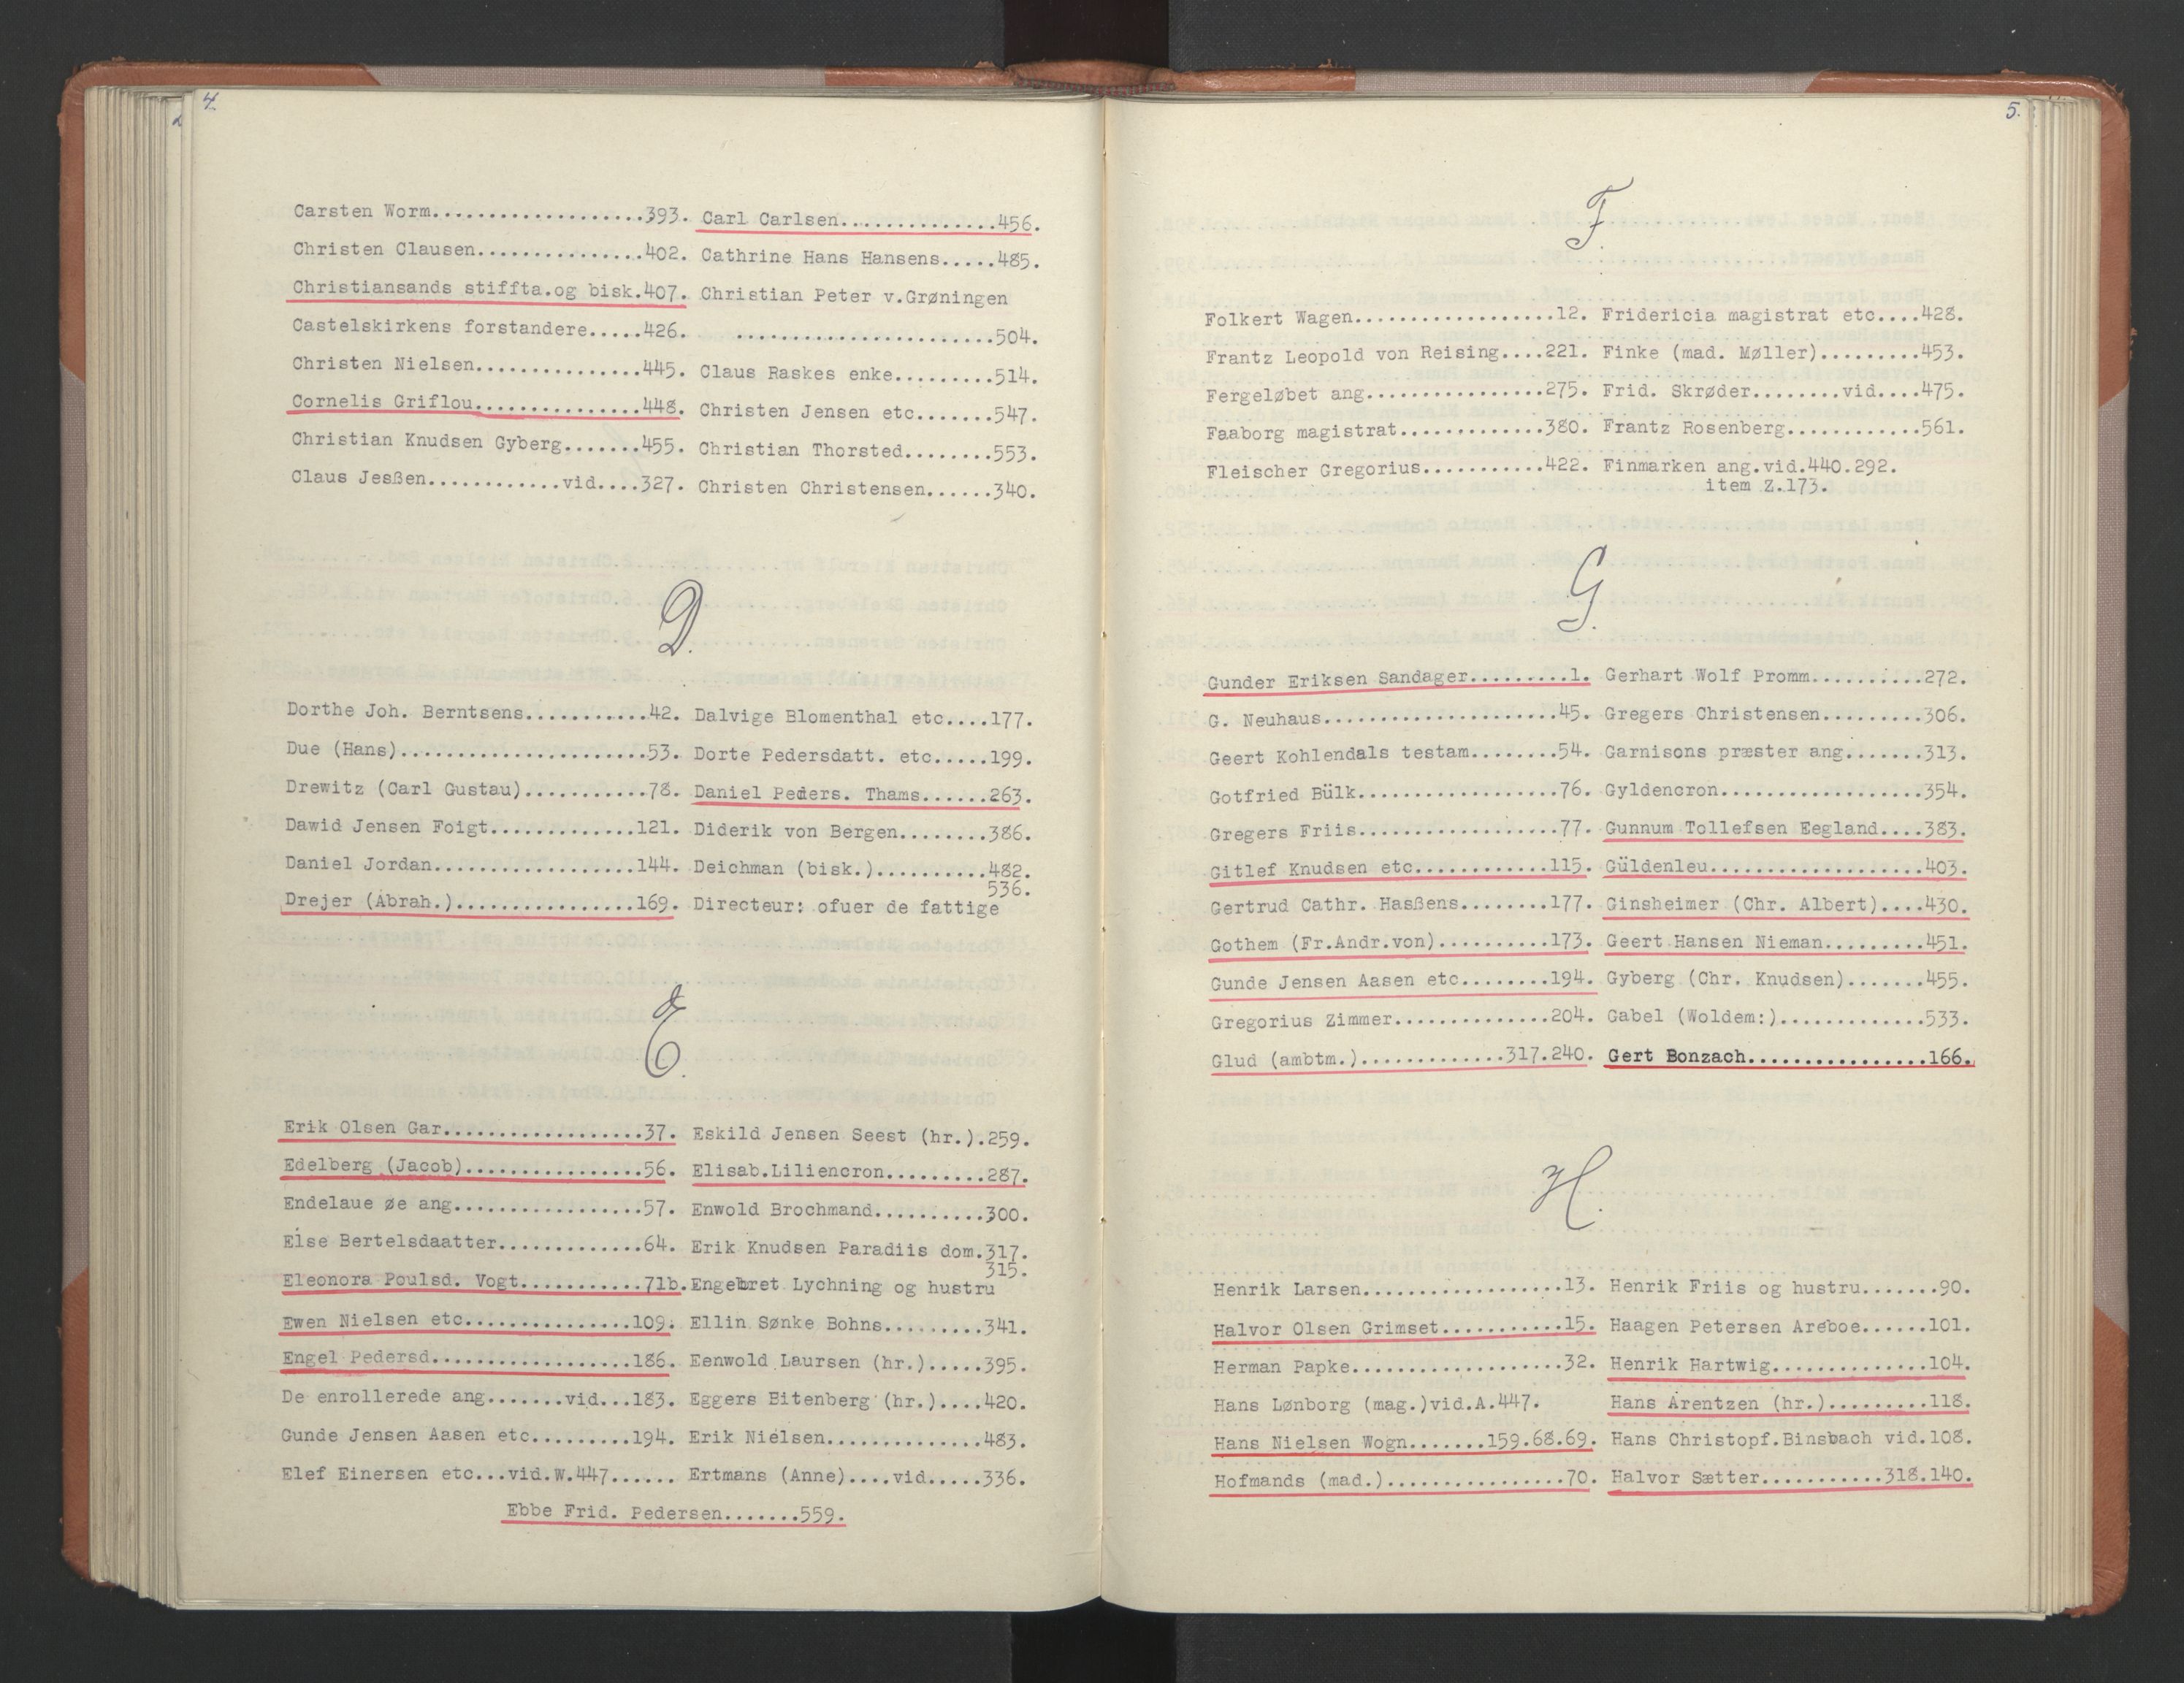 4.
Carsten Worm...................393.
Christen Clausen...............402.
Christiansands stiffta.og bisk.407.
Castelskirkens forstandere.....426.
Christen Nielsen...............445.
Cornelis Griflou...............448.
Christian Knudsen Gyberg.......455.
Claus Jesßen............vid....327.
Carl Carlsen..............456.
Cathrine Hans Hansens.....485.
Christian Peter v.Grøningen
.......................504.
Claus Raskes enke.........514.
Christen Jensen etc.......547.
Christian Thorsted........553.
Christen Christensen......340.
D.
Dorthe Joh. Berntsens...........42.
Due (Hans)......................53.
Drewitz (Carl Gustau)...........78.
Dawid Jensen Foigt.............121.
Daniel Jordan..................144.
Drejer (Abrah.)................169.
Dalvige Blomenthal etc....177.
Dorte Pedersdatt. etc.....199.
Daniel Peders. Thams......263.
Diderik von Bergen........386.
Deichman (bisk.)..........482.
536.
Directeur: ofuer de fattige
E.
Erik Olsen Gar..................37.
Edelberg (Jacob)................56.
Endelaue øe ang.................57.
Else Bertelsdaatter.............64.
Eleonora Poulsd. Vogt...........71b.
Ewen Nielsen etc...............109.
Engel Pedersd..................186.
De enrollerede ang.......vid...183.
Gunde Jensen Aasen etc.........194.
Elef Einersen etc...vid.W.447......
Eskild Jensen Seest (hr.).259.
Elisab.Liliencron.........287.
Enwold Brochmand..........300.
Erik Knudsen Paradiis dom.317.
315.
Engelbret Lychning og hustru
Ellin Sønke Bohns.........341.
Eenwold Laursen (hr.).....395.
Eggers Bitenberg (hr.)....420.
Erik Nielsen..............483.
Ertmans (Anne)....vid.....336.
Ebbe Frid. Pedersen.......559.
5.
F.
Folkert Wagen..................12.
Frantz Leopold von Reising....221.
Fergeløbet ang................275.
Faaborg magistrat.............380.
Fleischer Gregorius...........422.
Fridericia magistrat etc....428.
Finke (mad. Møller).........453.
Frid. Skrøder........vid....475.
Frantz Rosenberg............561.
Finmarken ang.vid.440.292.
item Z.173.
G.
Gunder Eriksen Sandager.........1.
G. Neuhaus.....................45.
Geert Kohlendals testam........54.
Gotfried Bülk..................76.
Gregers Friis..................77.
Gitlef Knudsen etc............115.
Gertrud Cathr. Hasßens........177.
Gothem (Fr.Andr.von)..........173.
Gunde Jensen Aasen etc........194.
Gregorius Zimmer..............204.
Glud (ambtm.).............317.240.
Gerhart Wolf Promm..........272.
Gregers Christensen.........306.
Garnisons præster ang.......313.
Gyldencron..................354.
Gunnum Tollefsen Eegland....383.
Güldenleu...................403.
Ginsheimer (Chr. Albert)....430.
Geert Hansen Nieman.........451.
Gyberg (Chr. Knudsen).......455.
Gabel (Woldem:).............533.
Gert Bonzach................166.
H.
Henrik Larsen..................13.
Halvor Olsen Grimset...........15.
Herman Papke...................32.
Hans Lønborg (mag.)vid.A.447.
Hans Nielsen Wogn.......159.68.69.
Hofmands (mad.)................70.
Henrik Friis og hustru.......90.
Haagen Petersen Areboe......101.
Henrik Hartwig..............104.
Hans Arentzen (hr.).........118.
Hans Christopf.Binsbach vid.108.
Halvor Sætter...........318.140.